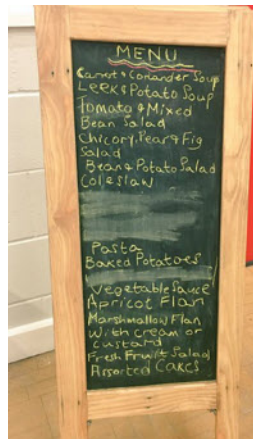 MENU
Carrot & Coriander Soup
Leek & Potato Soup
Tomato & Mixed
Bean Salad
Chicory, Pear & Fig
Salad
Bean & Potato Salad
Coleslaw
Pasta
Baked Potatoes
Vegetable Sauce
Apricot Flan
Marshmallow Flan
With Cream or
custard
Fresh Fruit Salad
Assorted Cakes